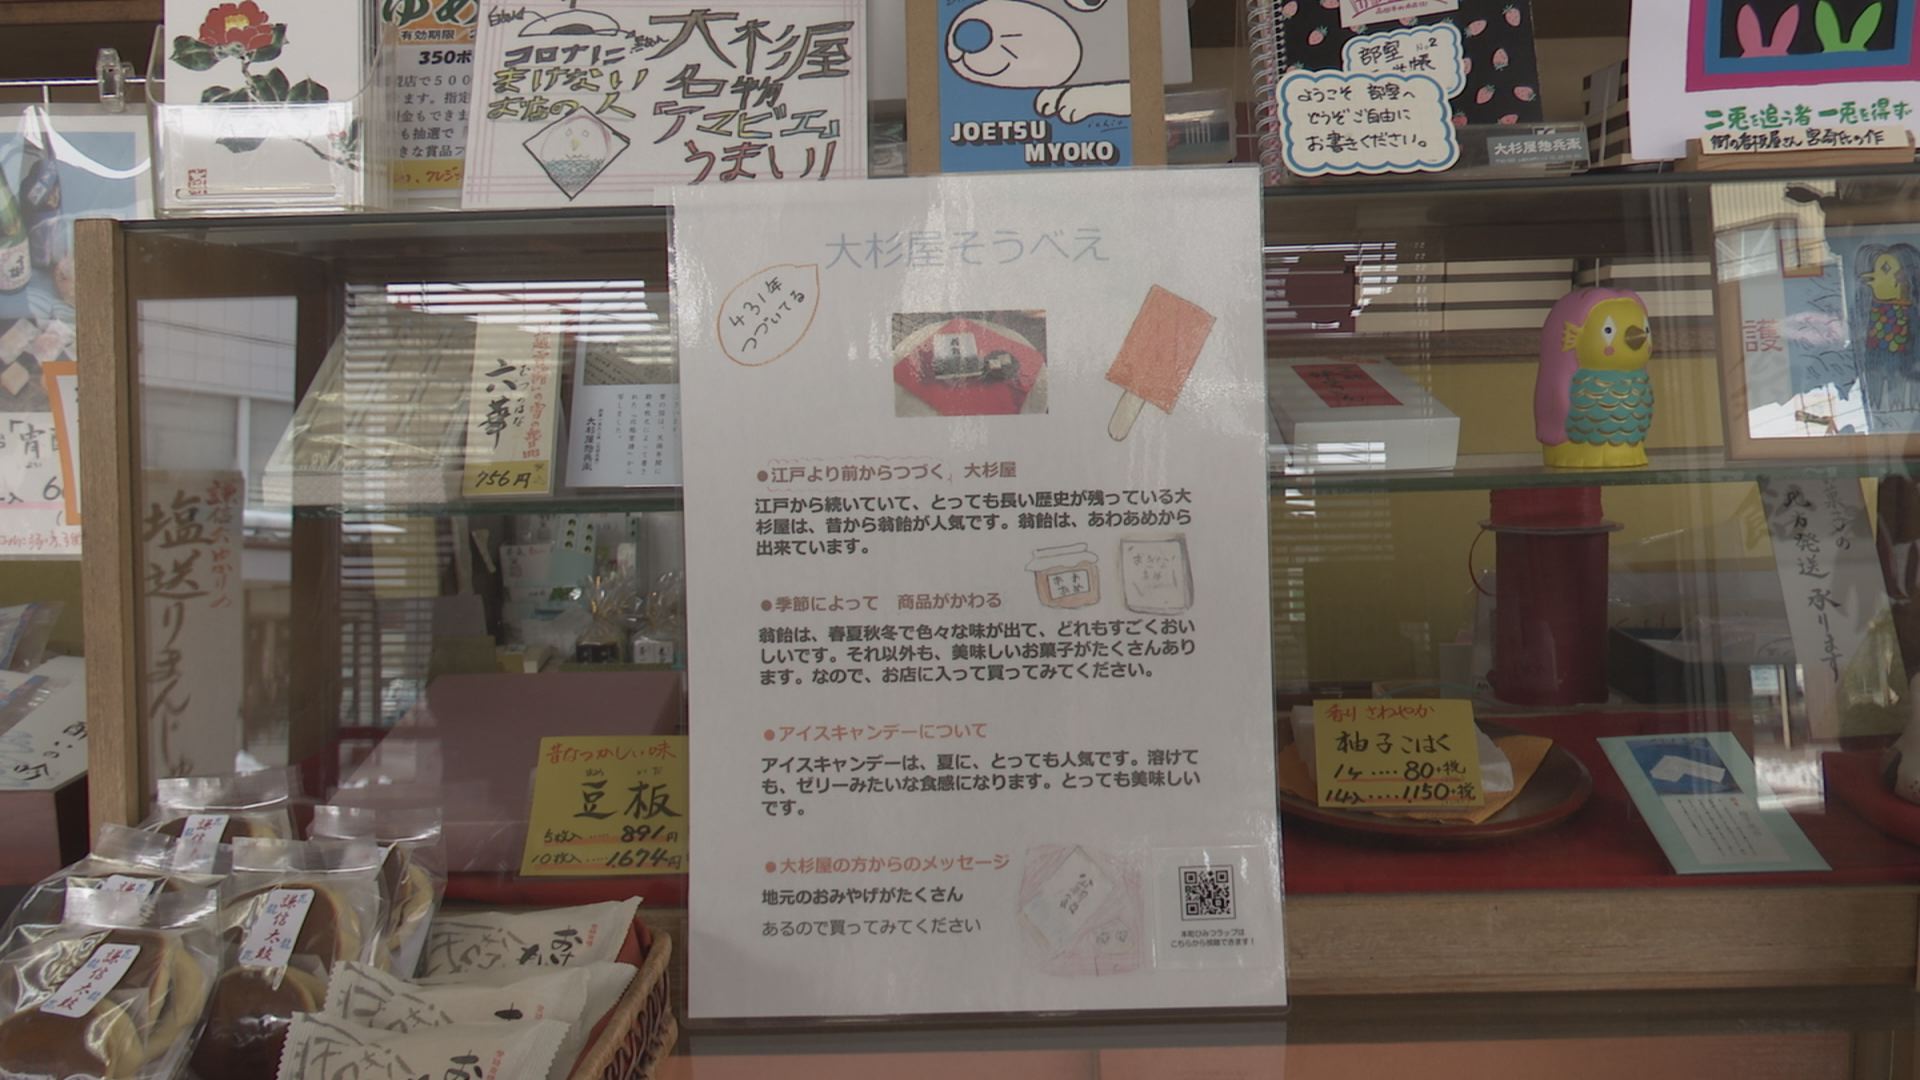 ゆめ
有効期限
350ポ
コロナに
まけない
お店の人
大杉屋
名物
「アマビエ」
うまい!!
JOETSU
MYOKO
部室
ようこそ 部室へ
どうぞご自由に
お書きください。
大杉屋惣兵衛
二兎を追う者 一兎を得ず
大杉屋そうべえ
431年
つづいてる
●江戸より前からつづく、大杉屋
江戸から続いていて、とっても長い歴史が残っている大
杉屋は、昔から翁飴が人気です。翁飴は、あわあめから
出来ています。
あわ
あめ
●季節によって 商品がかわる
翁飴は、春夏秋冬で色々な味が出て、どれもすごくおい
しいです。それ以外も、美味しいお菓子がたくさんあり
ます。なので、お店に入って買ってみてください。
●アイスキャンデーについて
アイスキャンデーは、夏に、とっても人気です。溶けて
も、ゼリーみたいな食感になります。とっても美味しい
です。
●大杉屋の方からのメッセージ
地元のおみやげがたくさん
あるので買ってみてください
本町ひみつラップは
こちらから視聴できます!
六華
むつのはな
756円
大杉屋惣兵衛
謙信公ゆかりの
塩送りまんじゅ
昔なつかしい味
豆板
5枚入‥‥891円
10枚入‥‥1,674円
護
お菓子の
地方発送 承ります
香りさわやか
柚子こはく
1ヶ‥‥80+税
14入‥‥1150+税
謙信太鼓
謙信太鼓